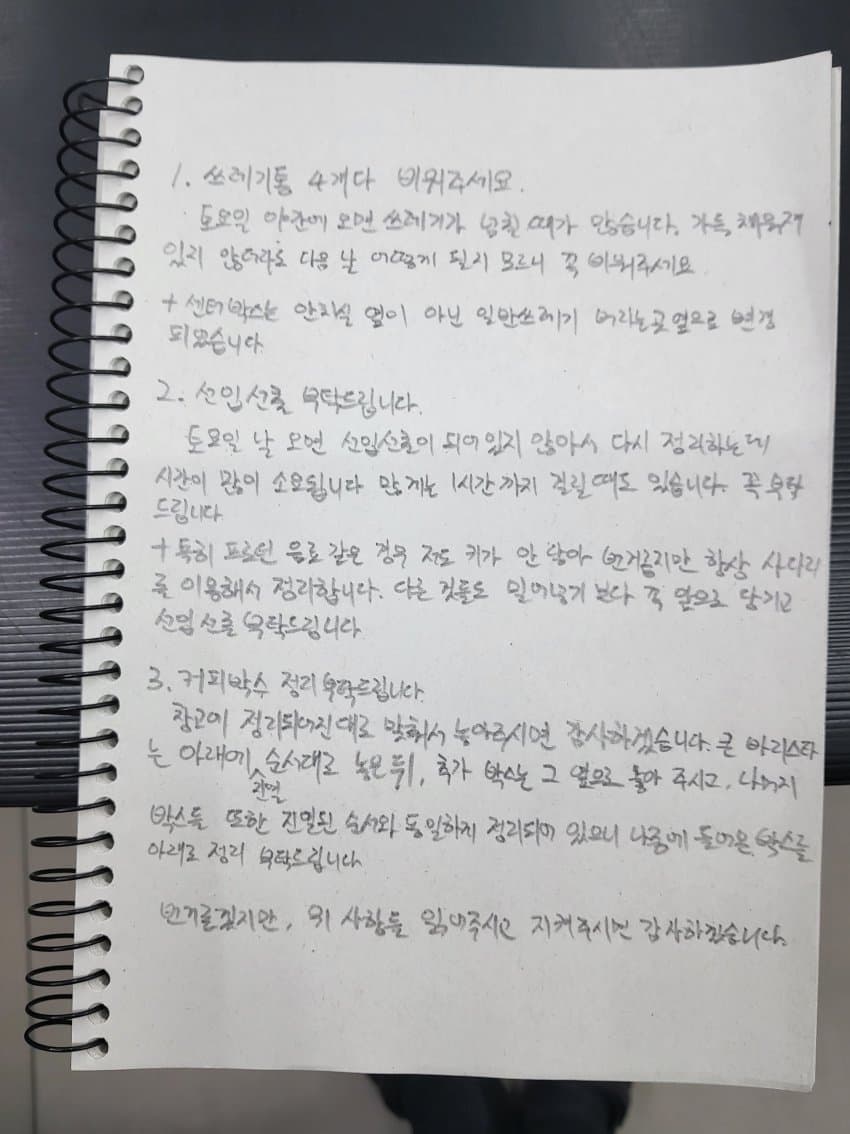 1. 쓰레기통 4개다 비워주세요.
토요일 야간에 오면 쓰레기가 넘칠 때가 많습니다. 가득 채워져
있지 않더라도 다음 날 어떻게 될지 모르니 꼭 비워주세요
+ 센터박스는 안치실 옆이 아닌 일반쓰레기 버리는곳 옆으로 변경
되었습니다.
2. 선입선출 부탁드립니다.
토요일 날 오면 선입선출이 되어있지 않아서 다시 정리하는데
시간이 많이 소요됩니다 많게는 1시간까지 걸릴때도 있습니다. 꼭 부탁
드립니다
+ 특히 프로틴 음료 같은 경우 저도 키가 안 닿아 번거롭지만 항상 사다리
를 이용해서 정리합니다. 다른 것들도 밀어넣기 보다 꼭 앞으로 당기고
선입선출 부탁드립니다
3. 커피박수 정리 부탁드립니다.
창고에 정리되어진대로 맞춰서 놓아주시면 감사하겠습니다. 큰 바리스타
는 아래에 진열 순서대로 놓은 뒤, 추가 박스는 그 옆으로 놓아 주시고, 나머지
박스들 또한 진열된 순서와 동일하게 정리되어 있으니 나중에 들어온 박스를
아래로 정리 부탁드립니다
번거롭겠지만, 위 사항들 읽어주시고 지켜주시면 감사하겠습니다.